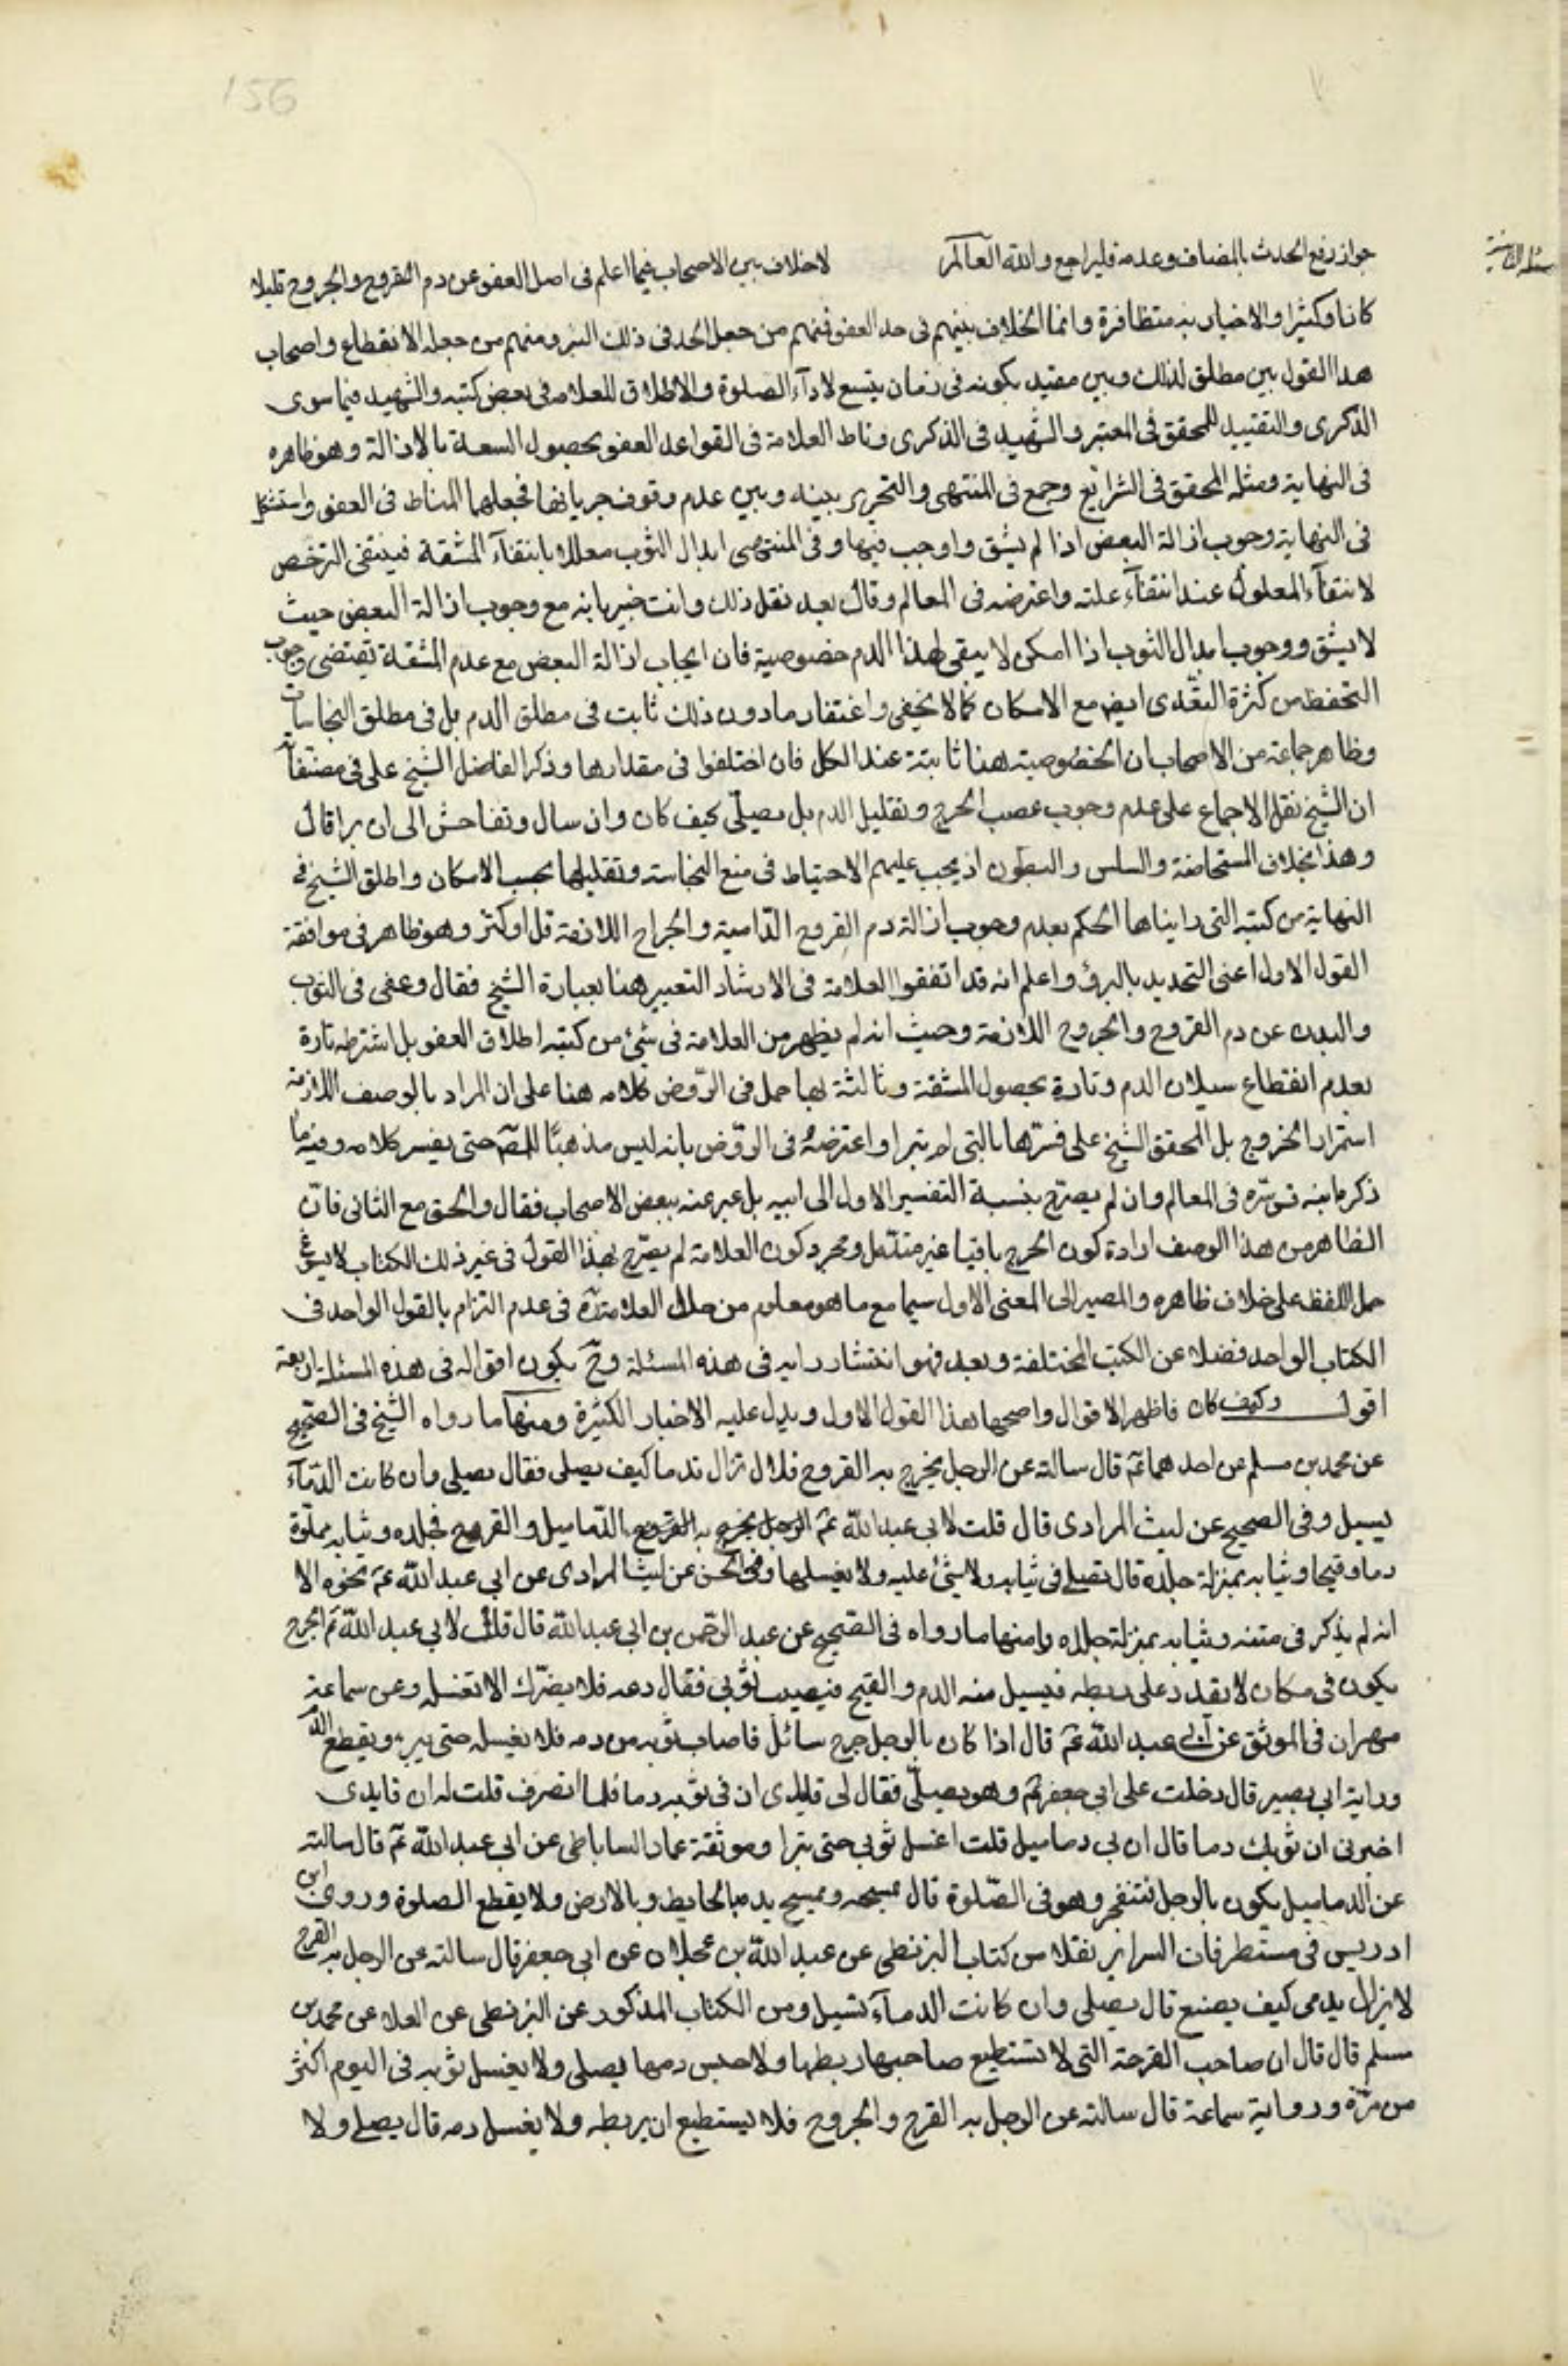 156
جواز رفع الحدث بالمضاف وعدمه فليراجع والله العالم لا خلاف بين الاصحاب فيما اعلم فى اصل العفو عن دم القروح والجروح قليلا
كانا وكثيرا والاخبار به متظافرة وانما الخلاف بينهم فى حد العفو فمنهم من جعل الحد فى ذلك البرء ومنهم من جعله الانقطاع واصحاب
هذا القول بين مطلق لذلك وبين مقيد بكونه فى زمان يتسع لادآء الصلوة والاطلاق للعلامه فى بعض كتبه والشهيد فيما سوى
الذكرى والتقييد للمحقق فى المعتبر والشهيد فى الذكرى وناط العلامة فى القواعد العفو بحصول السعة بالازالة وهو ظاهره
فى النهاية ومثله المحقق فى الشرايع وجمع فى المنتهى والتحرير بينه وبين عدم وقوف جريانها فجعلهما المناط فى العفو واستشكل
فى النهاية وجوب ازالة البعض اذا لم يشق واوجب فيها وفى المنتهى ابدال الثوب معللا بانتفآء المشقة فينتفى الترخص
لانتفآء المعلول عند انتفآء علته واعترضه فى المعالم وقال بعد نقل ذلك وانت خبير بانه مع وجوب ازالة البعض حيث
لا يشق ووجوب ابدال الثوب اذا امكن لا يبقى لهذا الدم خصوصية فان ايجاب ازالة البعض مع عدم المشقة يقتضى وجوب
التحفظ من كثرة التعدى ايضا مع الامكان كما لا يخفى واغتفار ما دون ذلك ثابت فى مطلق الدم بل فى مطلق النجاسات
وظاهر جماعة من الاصحاب ان الخصوصية هنا ثابتة عند الكل فان اختلفوا فى مقدارها وذكر الفاضل الشيخ على فى مصنفاته
ان الشيخ نقل الاجماع على عدم وجوب عصب الجرح وتقليل الدم بل يصلّى كيف كان وان سال وتفاحش الى ان يبرا قال
وهذا بخلاف المستحاضة والسلس والمبطون اذ يجب عليهم الاحتياط فى منع النجاسة وتقليلها بحسب الامكان واطلق الشيخ فى
النهاية من كتبه التى رايناها الحكم بعدم وجوب ازالة دم القروح الدّامية والجراح اللازمة قل او كثر وهو ظاهر فى موافقة
القول الاول اعنى التحديد بالبرؤ واعلم انه قد اتفق للعلامة فى الارشاد التعبير هنا بعبارة الشيخ فقال وعفى فى الثوب
والبدن عن دم القروح والجروح اللازمة وحيث انه لم يظهر من العلامة فى شئ من كتبه اطلاق العفو بل اشترطه تارة
بعدم انقطاع سيلان الدم وتارة بحصول المشقة وثالثة بهما حمل فى الرّوض كلامه هنا على ان المراد بالوصف اللازمة
استمرار الخروج بل المحقق الشيخ على فسرّها بالتى لم تبرا واعترضهُ فى الروّض بانه ليس مذهبًا للمصّ حتى يفسر كلامه وفيه ما
ذكره ابنه قدّس سره فى المعالم وان لم يصرّح بنسبة التفسير الاول الى ابيه بل عبر عنه ببعض الاصحاب فقال والحق مع الثانى فانّ
الظاهر من هذا الوصف ارادة كون الجرح باقيا غير مندمل ومجرد كون العلامة لم يصّرح بهذا القول فى غير ذلك الكتاب لا يسوغ
حمل اللفظ على خلاف ظاهره والمصير الى المعنى الاول سيما مع ما هو معلوم من حال العلامة ره فى عدم التزام بالقول الواحد فى
الكتاب الواحد فضلا عن الكتب المختلفة وبعد فهو انتشار رايه فى هذه المسئلة وح يكون اقواله فى هذه المسئلة اربعة
اقول وكيف كان فاظهر الاقوال واصحها هذا القول الاول ويدل عليه الاخبار الكثيرة ومنها ما رواه الشيخ فى الصحيح
عن محمد بن مسلم عن احدهما عم قال سالته عن الرجل يخرج به القروح فلا تزال تدما كيف يصلى فقال يصلى وان كانت الدّمآء
يسيل وفى الصحيح عن ليث المرادى قال قلت لابى عبد الله عم الرجل يخرج به القروح الدّماميل والقروح فجلده وثيابه مملوّة
دما وقيحا وثيابه بمنزلة جلده قال يصلى فى ثيابه ولا شئ عليه ولا يغسلها وفى الحسن عن ليث المرادى عن ابى عبد الله عم نحوه الا
انه لم يذكر فى متنه وثيابه بمنزلة جلده ومنها ما رواه فى الصحيح عن عبد الرحمن بن ابى عبد الله قال قلت لابى عبد الله عم الجرح
يكون فى مكان لا يقدر على ربطه فيسيل منه الدم والقيح فيصيب ثوبى فقال دعه فلا يضّرك الا تغسله وعن سماعة
مهران فى الموثق عن ابى عبد الله عم قال اذا كان بالرجل جرح سائل فاصاب ثوبه من دمه فلا يغسله حتى يبرء ويقطع الدم
ورواية ابى بصير قال دخلت على ابى جعفر عم وهو يصلّى فقال لى قايدى ان فى ثوبه دما فلما انصرف قلت له ان قايدى
اخبرنى ان ثوبك دما قال ان بى دماميل قلت اغسل ثوبى حتى تبرا وموثقة عمار الساباطى عن ابى عبد الله عم قال سالته
عن الدماميل يكون بالرجل فتنفجر وهو فى الصّلوة قال يمسحه ويمسح يده بالحايط وبالارض ولا يقطع الصلوة وروى ابن
ادريس فى مستطرفات السراير نقلا من كتاب البزنطى عن عبد الله بن عجلان عن ابى جعفر قال سالته عن الرجل به القرح
لا يزال يدمى كيف يصنع قال يصلى وان كانت الدمآء تسيل ومن الكتاب المذكور عن البزنطى عن العلا عن محمد بن
مسلم قال قال ان صاحب القرحة التى لا تستطيع صاحبها ربطها ولا حبس دمها يصلى ولا يغسل ثوبه فى اليوم اكثر
من مرّة ورواية سماعة قال سالته عن الرجل به القرح والجروح فلا يستطيع ان يربطه ولا يغسل دمه قال يصلى ولا